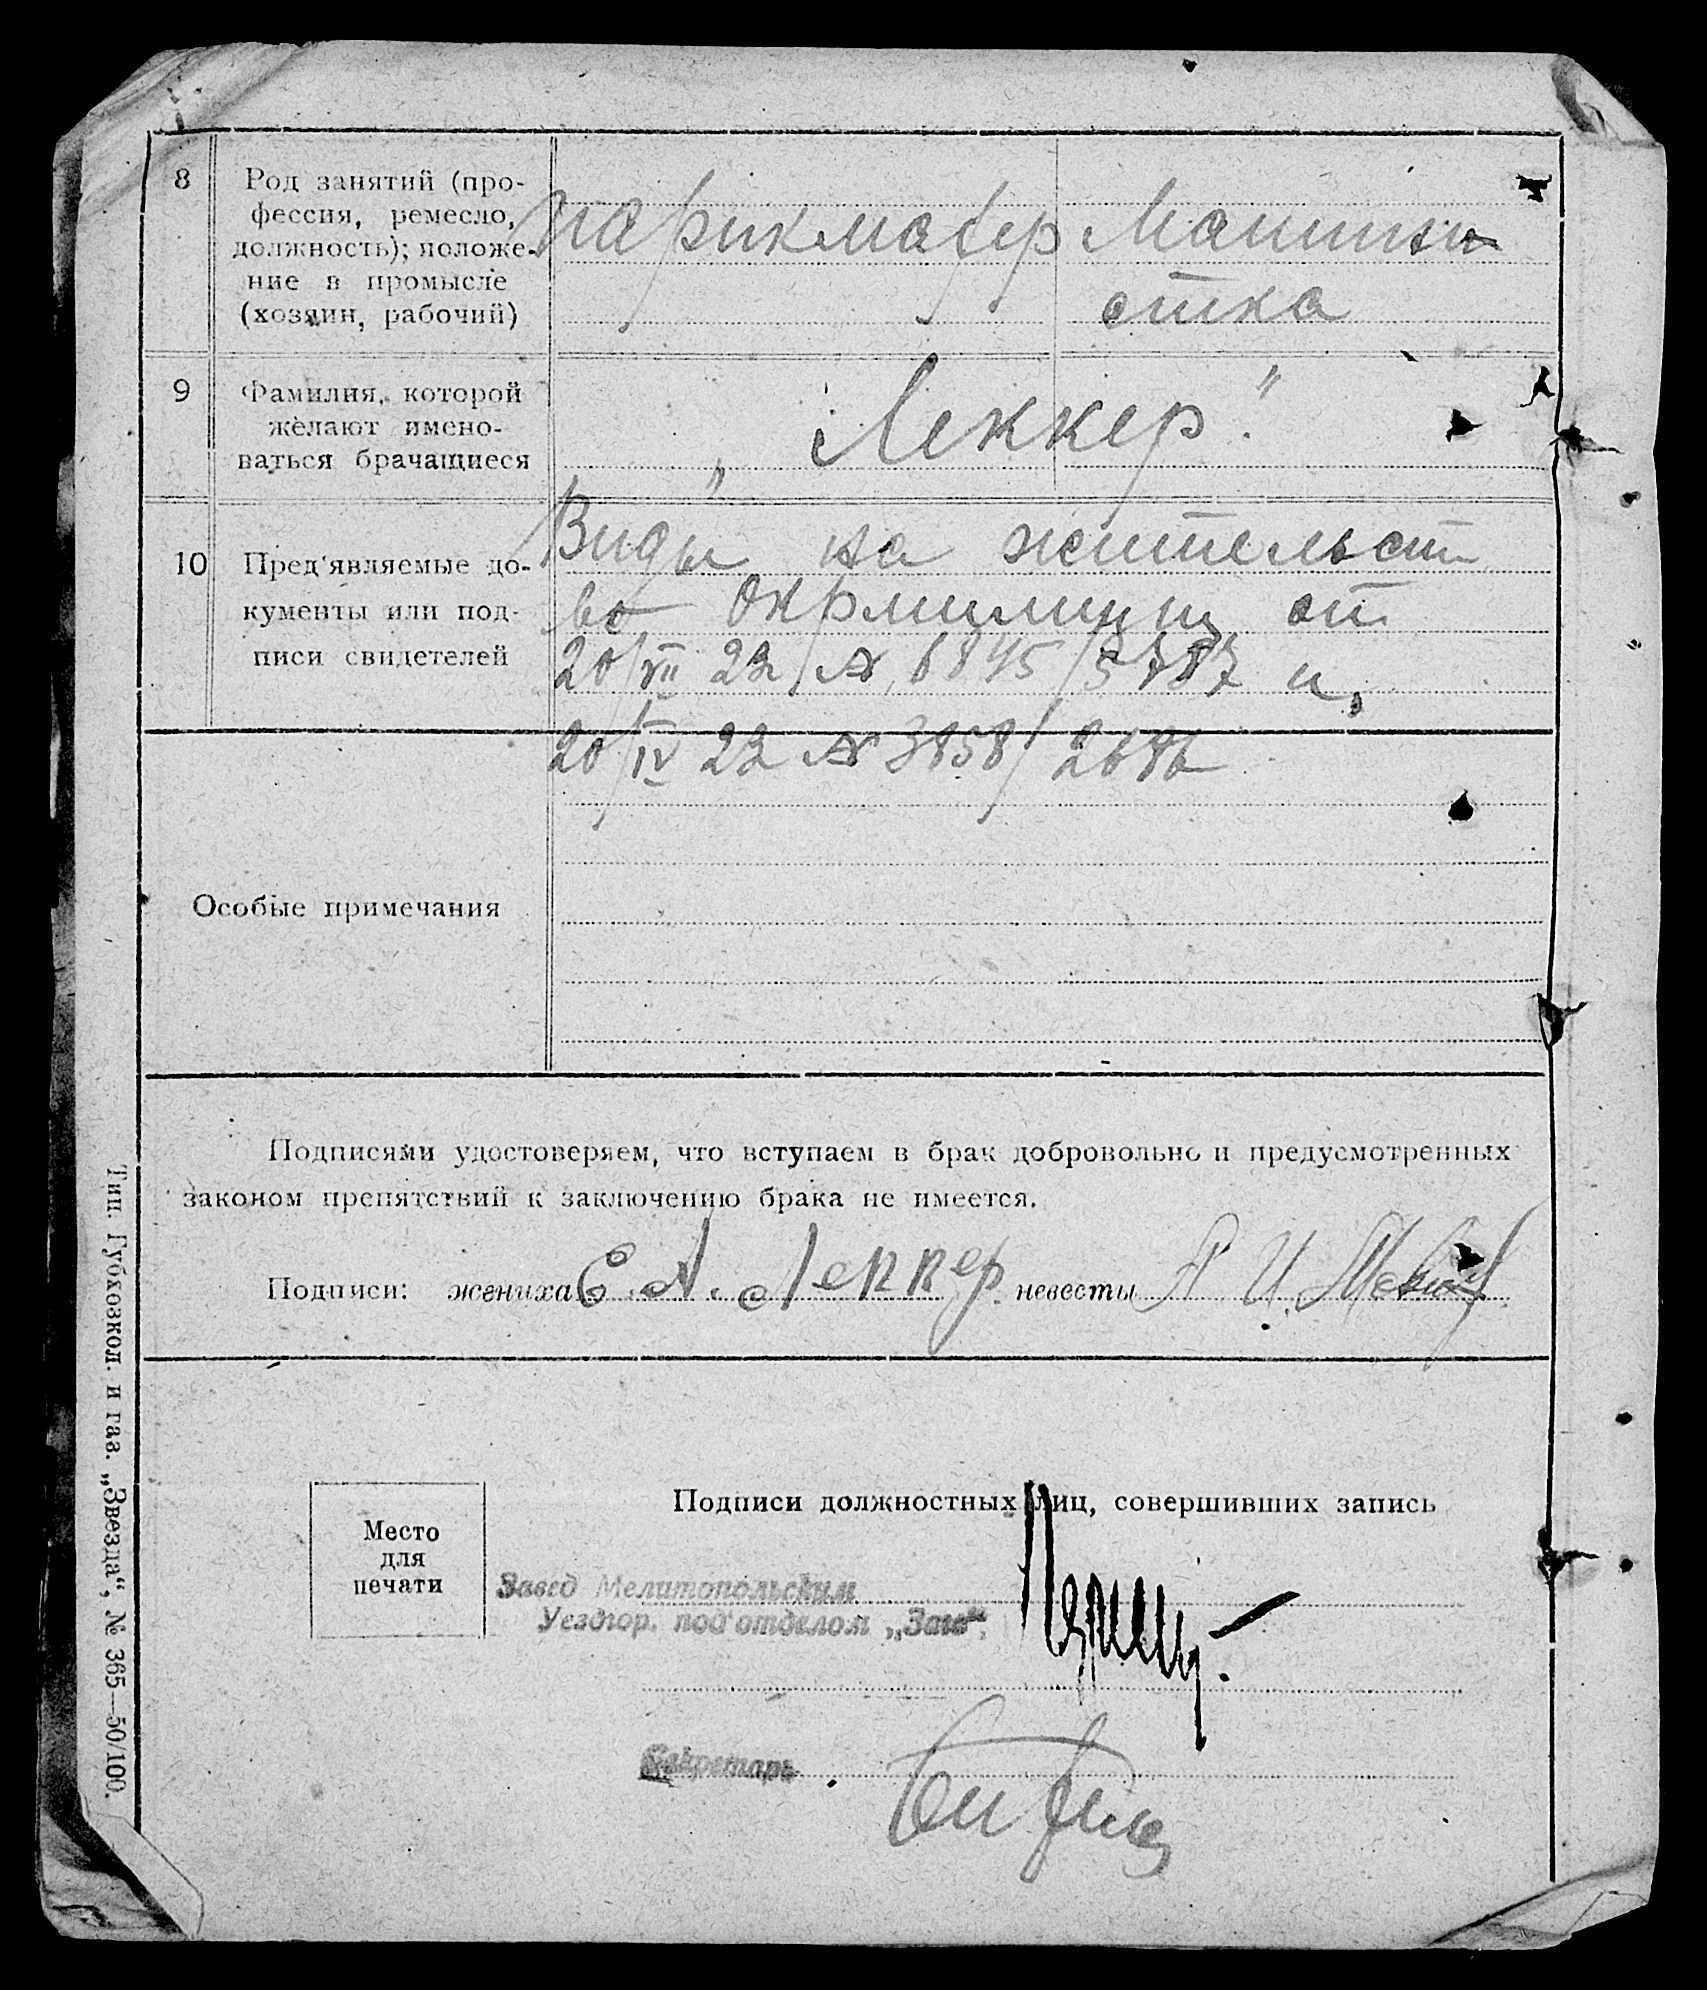 8
Род занятий (про-
фессия, ремесло,
должность); положе-
ние в промысле
(хозяин, рабочий)
парикмахер
Машини
стка
9
Фамилия, которой
желают имено-
ваться брачащиеся
„Леккер".
10
Пред'являемые до-
кументы или под-
писи свидетелей
Виды на жительст
во Окрмилиции от
20/VII 22 № 6845/5787 и
20/IV 22 № 3858/2686
Особые примечания
Подписями удостоверяем, что вступаем в брак добровольно и предусмотренных
законом препятствий к заключению брака не имеется.
Подписи: жениха С. А. Леккер невесты И.
Подписи должностных лиц, совершивших запись
Место
для
печати
Завед Мелитопольским
Уездгор. под'отделом „Загс".
Секретарь
Тип. Губхозкол. и газ. „Звезда", № 365—50/100.